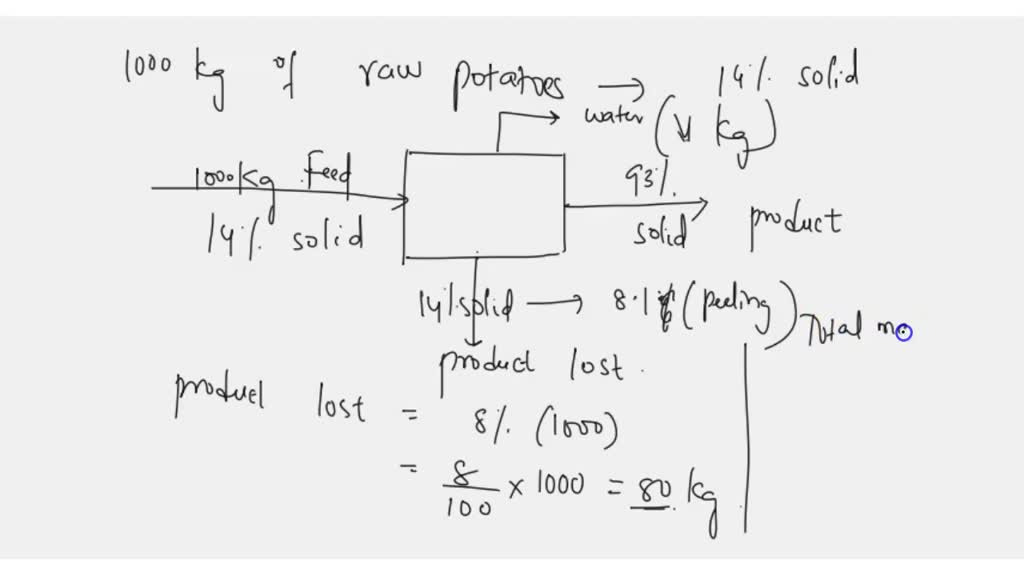 1000 kg of raw potatoes → 14% solid
water (V kg)
1000 kg Feed
93%
14% solid
solid
product
14% solid → 8% (peeling)
Total m
product lost.
product lost = 8% (1000)
= 8/100 × 1000 = 80 kg